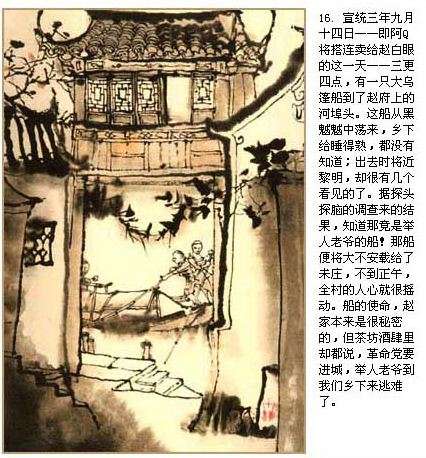 16. 宣统三年九月
十四日——即阿Q
将搭连卖给赵白眼
的这一天——三更
四点，有一只大乌
篷船到了赵府上的
河埠头。这船从黑
魆魆中荡来，乡下
人睡得熟，都没有
知道；出去时将近
黎明，却很有几个
看见的了。据探头
探脑的调查来的结
果，知道那竟是举
人老爷的船！那船
便将大不安载给了
未庄，不到正午，
全村的人心就很摇
动。船的使命，赵
家本来是很秘密
的，但茶坊酒肆里
却都说，革命党要
进城，举人老爷到
我们乡下来逃难
了。